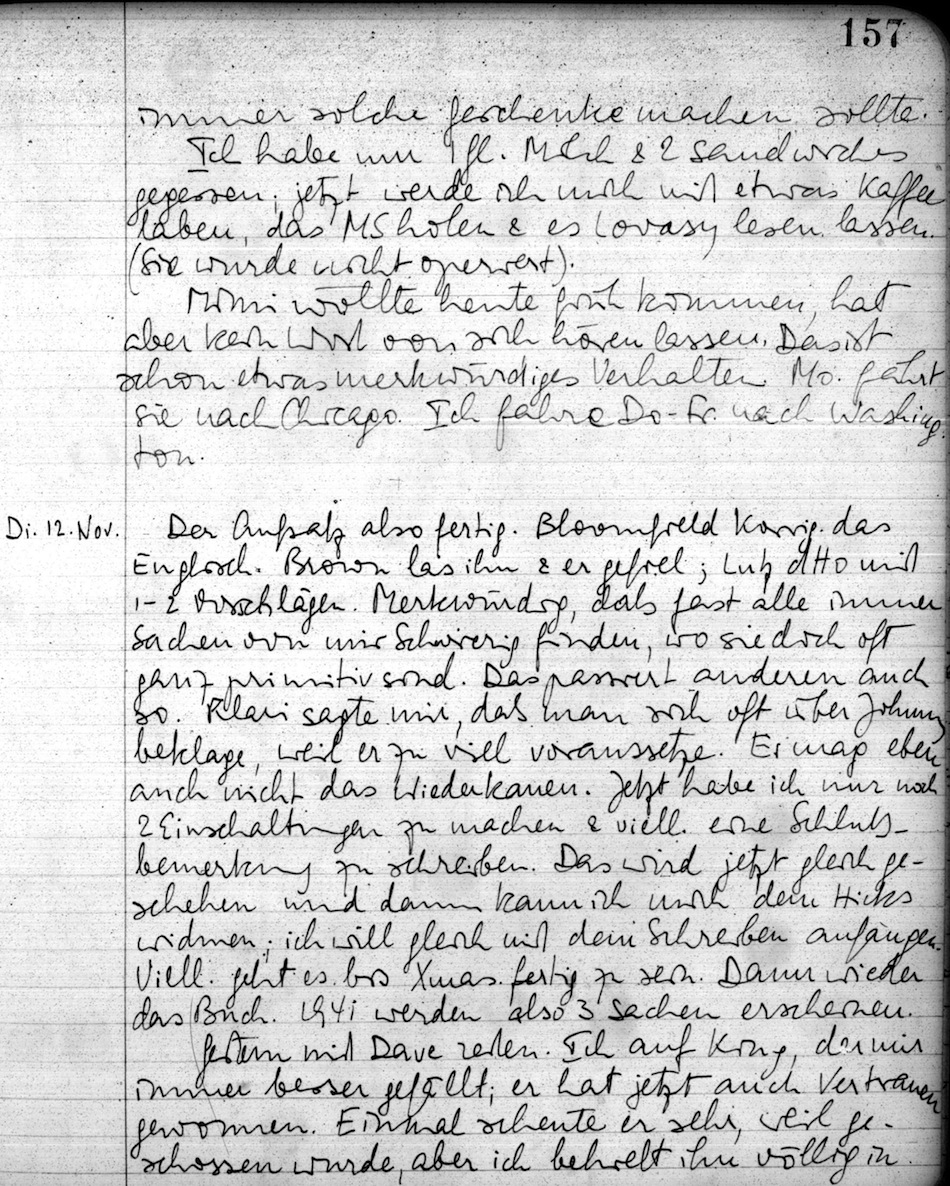 157
immer solche Geschenke machen sollte.
Ich habe nun 1 Fl. Milch & 2 Sandwiches
gegessen; jetzt werde ich mich mit etwas Kaffee
laben, das MS holen & es Lovasy lesen lassen.
(Sie wurde nicht operiert).
Mimi wollte heute früh kommen, hat
aber kein Wort von sich hören lassen. Das ist
schon etwas merkwürdiges Verhalten. Mo. fährt
sie nach Chicago. Ich fahre Do-Fr. nach Washing
ton.
Di. 12. Nov. Der Aufsatz also fertig. Bloomfield korrig. das
Englisch. Brown las ihn & er gefiel; Lutz dtto mit
1-2 Vorschlägen. Merkwürdig, dass fast alle immer
Sachen von mir schwierig finden, wo sie doch oft
ganz primitiv sind. Das passiert anderen auch
so. Klari sagte mir, dass man sich oft über Johnny
beklage, weil er zu viel voraussetze. Er mag eben
auch nicht das Wiederkauen. Jetzt habe ich nur noch
2 Einschaltungen zu machen & viell. eine Schluss-
bemerkung zu schreiben. Das wird jetzt gleich ge-
schehen und dann kann ich mich dem Hicks
widmen; ich will gleich mit dem Schreiben anfangen.
Viell. geht es bis Xmas. fertig zu sein. Dann wieder
das Buch. 1941 werden also 3 Sachen erscheinen.
Gestern mit Dave reiten. Ich auf King, der mir
immer besser gefällt; er hat jetzt auch Vertrauen
gewonnen. Einmal scheute er sehr, weil ge-
schossen wurde, aber ich behielt ihn völlig in